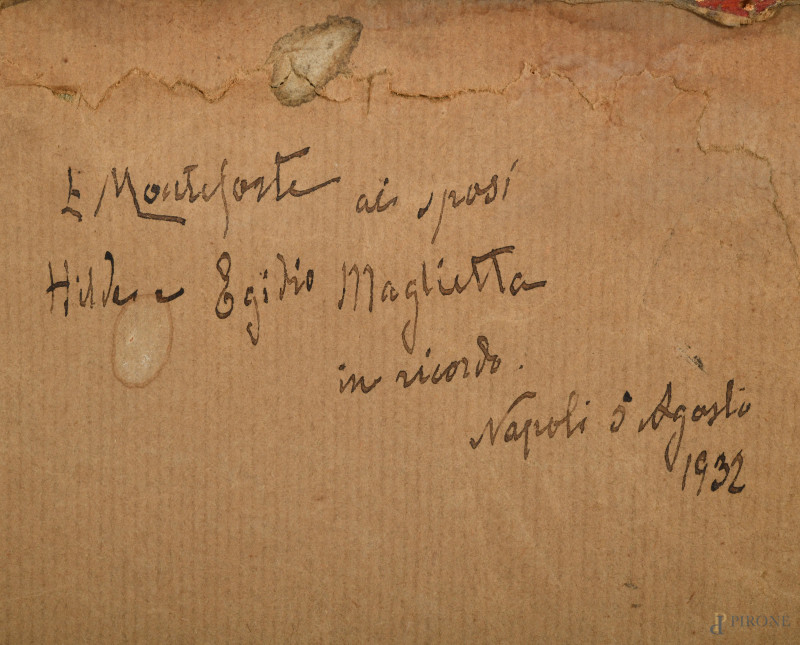 E Monteforte ai sposi
Hilde e Egidio Maglietta
in ricordo.
Napoli 5 Agosto
1932
PIRONE